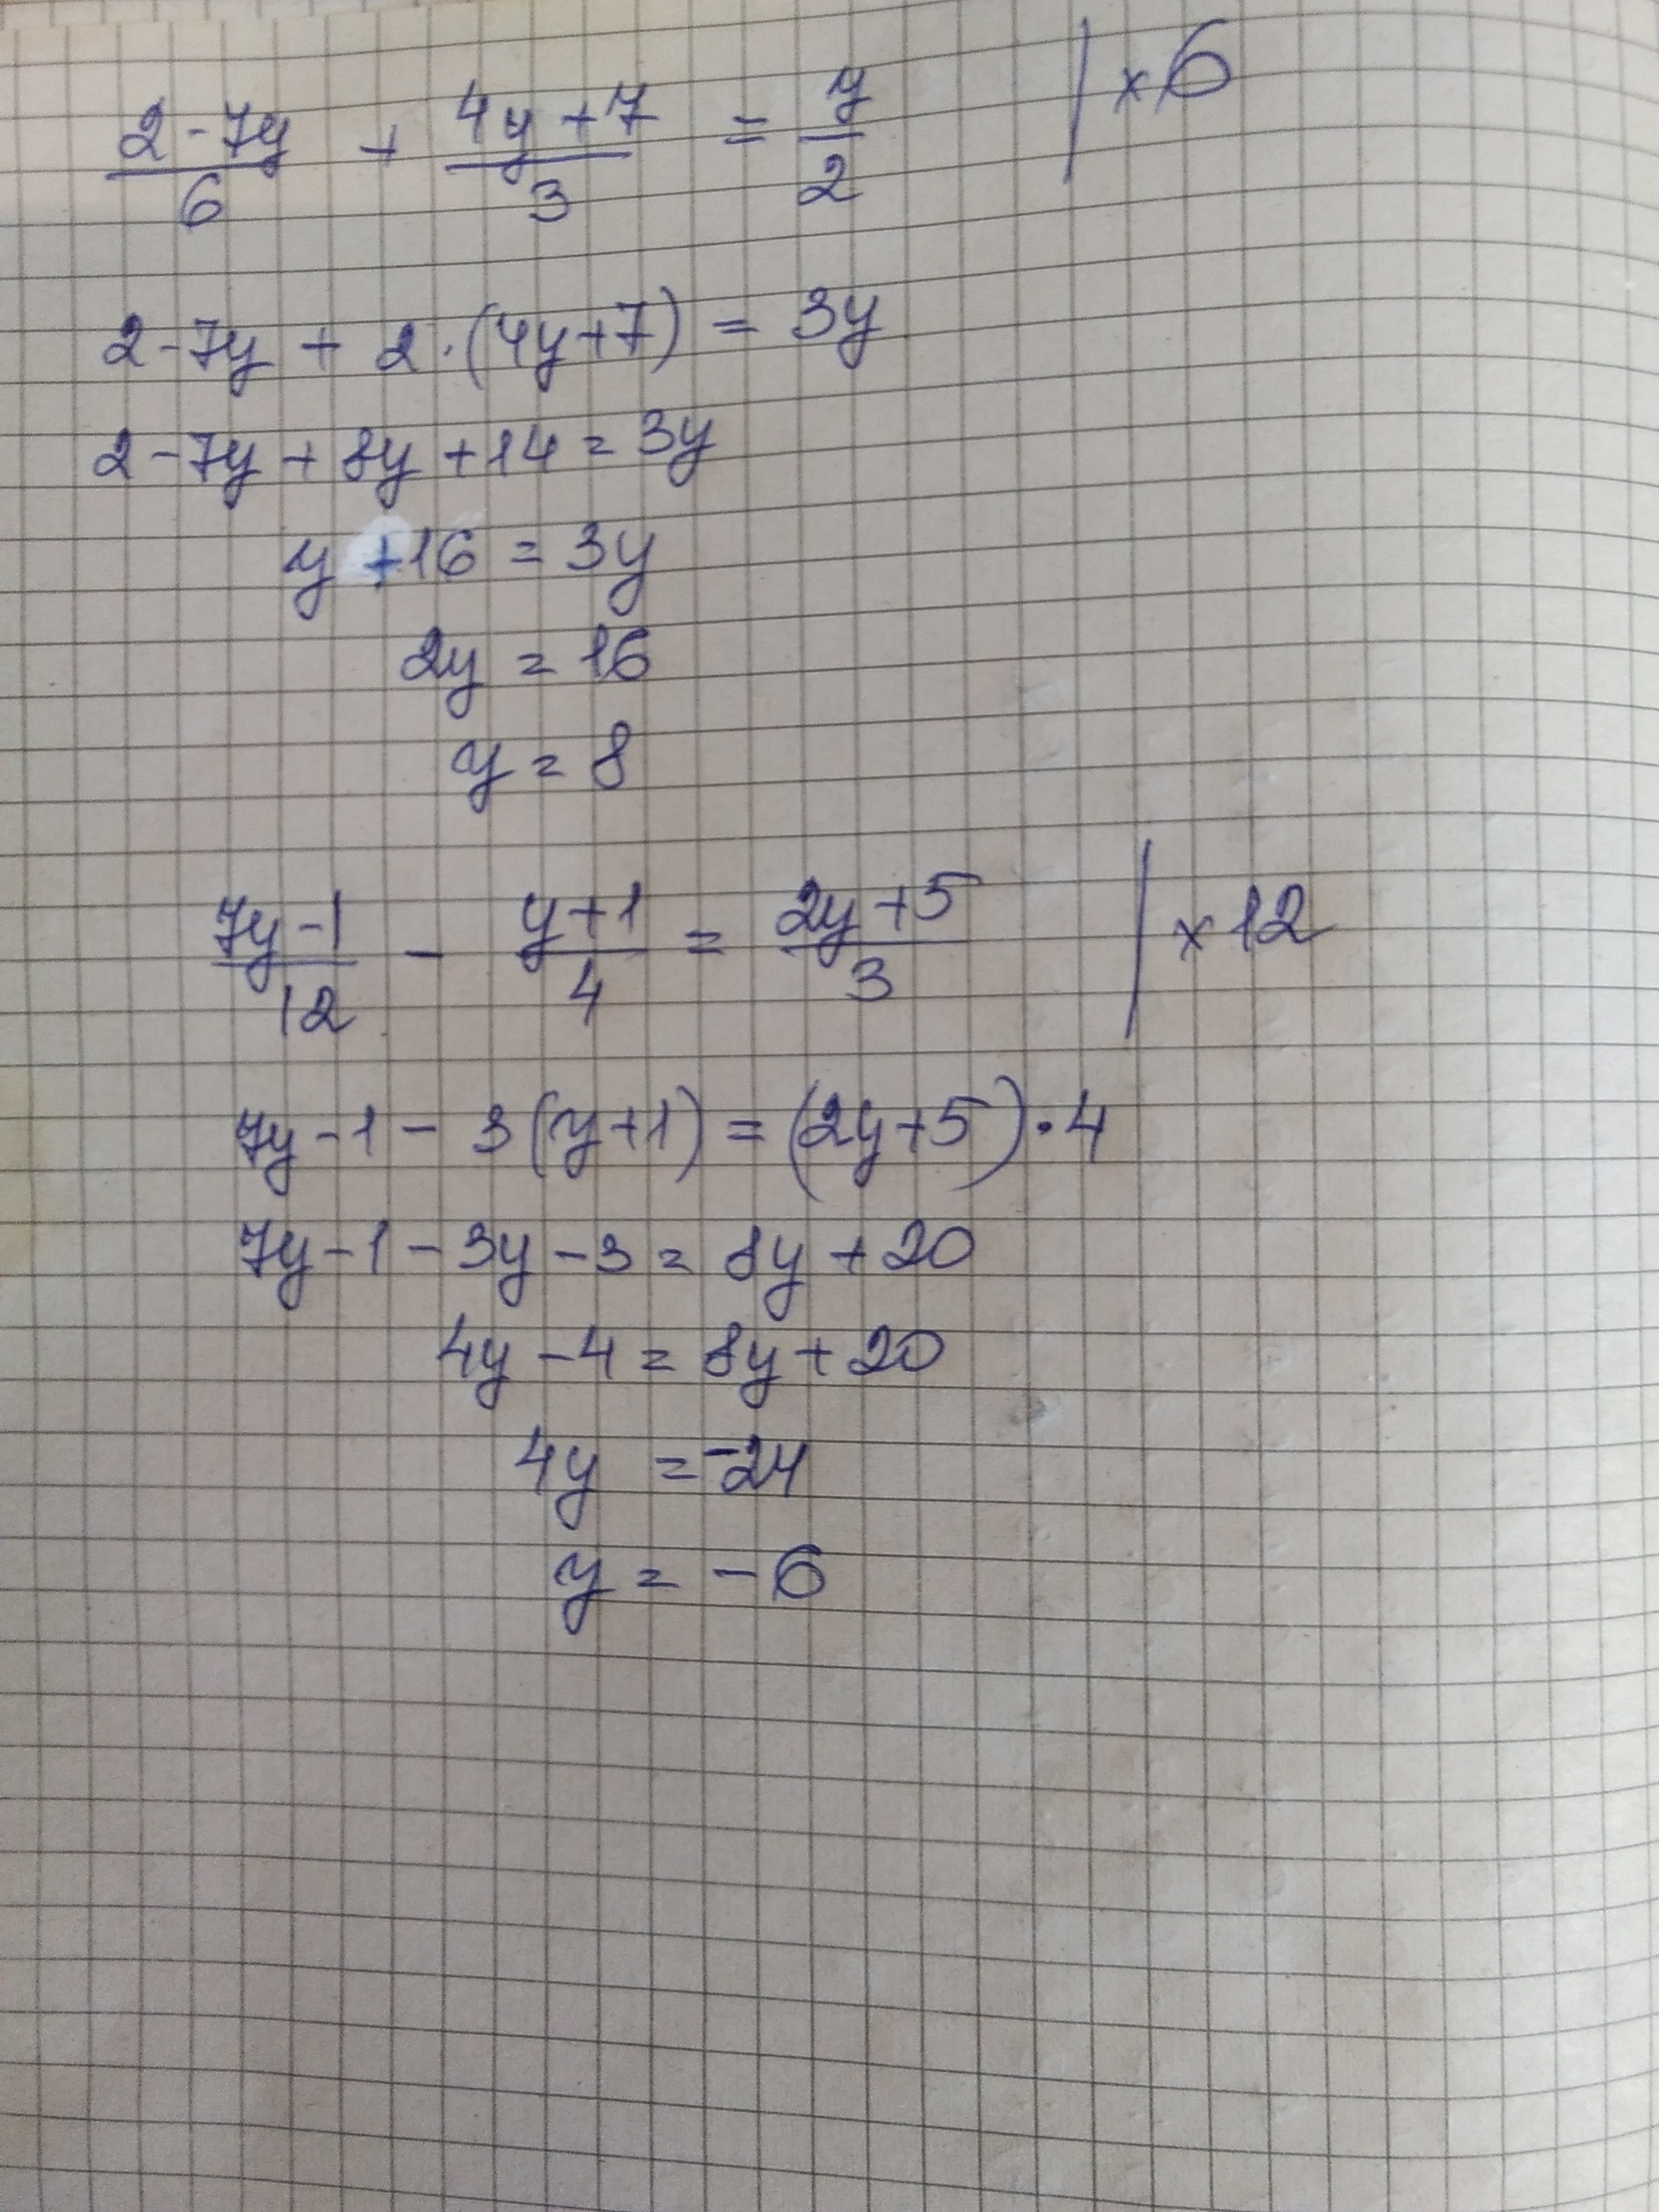 (2-7y)/6 + (4y+7)/3 = y/2 | ×6
2-7y + 2·(4y+7) = 3y
2-7y + 8y +14 = 3y
y +16 = 3y
2y = 16
y = 8
(7y-1)/12 - (y+1)/4 = (2y+5)/3 | ×12
7y-1- 3(y+1) = (2y+5)·4
7y-1-3y-3 = 8y+20
4y-4 = 8y+20
4y = -24
y = -6